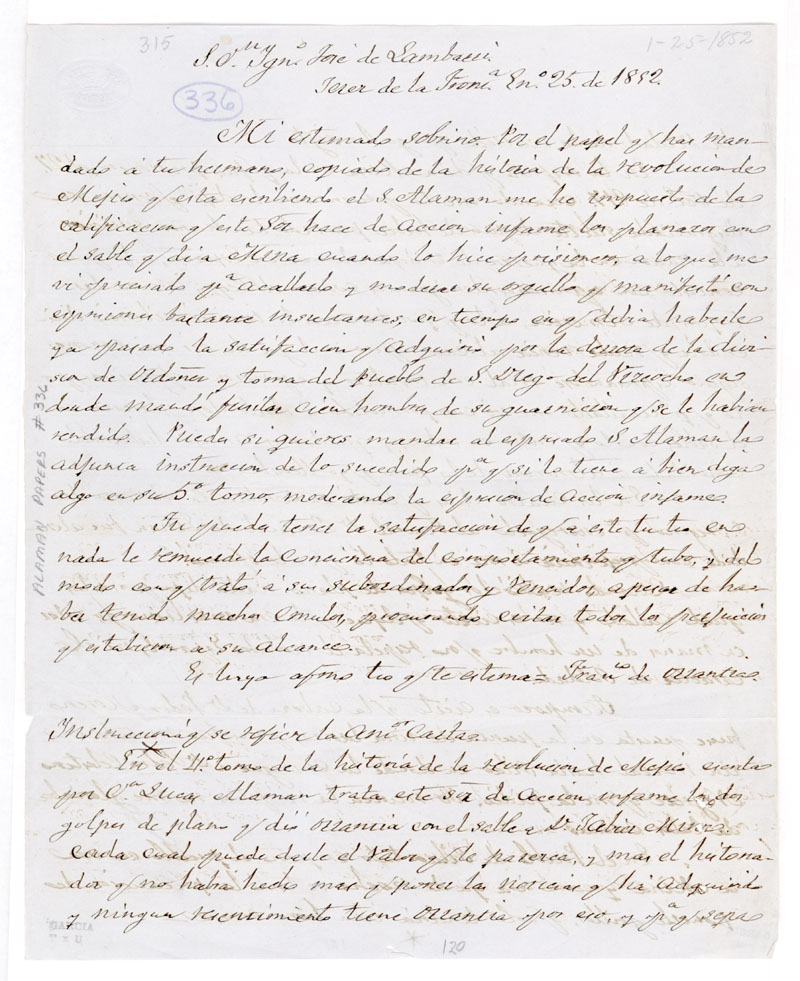 315
1-25-1852
S. Dn. Ygno. José de Lambarri
336
Jerez de la Fronta. Eno. 25. de 1852.
Mi estimado sobrino. Por el papel q/ has man-
dado á tu hermano, copiado de la historia de la revolucion de
Mejico q/ está escribiendo el S. Alaman me he impuesto de la
calificacion q/ este Sor. hace de accion infame los planazos con
el sable q/ di a Mina cuando lo hice prisionero, a lo que me
vi precisado pa. acallarlo y moderar su orgullo q/ manifestó con
espresiones bastante insultantes, en tiempo en q/ debia haberle
ya pasado la satisfaccion q/ adquirió por la derrota de la divi-
sion de Ordoñez y toma del pueblo de S. Diego del Viscocho en
donde mandó fusilar cien hombres de su guarnicion q/ se le habian
rendido. Puedes si quieres mandar al espresado S. Alaman la
adjunta instruccion de lo sucedido pa. q/ si lo tiene á bien diga
algo en su 5º. tomo, moderando la espresion de accion infame.
Tu puedes tener la satisfaccion de q/ á este tu tio en
nada le remuerde la conciencia del comportamiento q/ tubo, y del
modo con q/ trató á sus subordinados y vencidos, apesar de ha-
ber tenido muchos emulos, procurando evitar todos los perjuicios
q/ estubieron a su alcance.
Es tuyo afmo. tio q/ te estima = Franco. de Orrantia.
Instruccion á q/ se refiere la antor. Carta.
En el 4º. tomo de la historia de la revolucion de Mejico escrita
por Dn. Lucas Alaman trata este Sor. de accion infame los dos
golpes de plano q/ dió Orrantia con el sable a D. Xabier Mina.
cada cual puede darle el valor q/ le paresca, y mas el historia-
dor q/ no habrá hecho mas q/ poner las noticias q/ há adquirido
y ningun resentimiento tiene Orrantia por eso, y pa. q/ sepa
ALAMAN PAPERS # 336
GARCIA
120